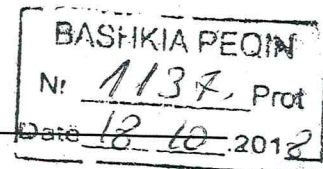 BASHKIA PEQIN
Nr 1137, Prot
Datë 18 10 .2018